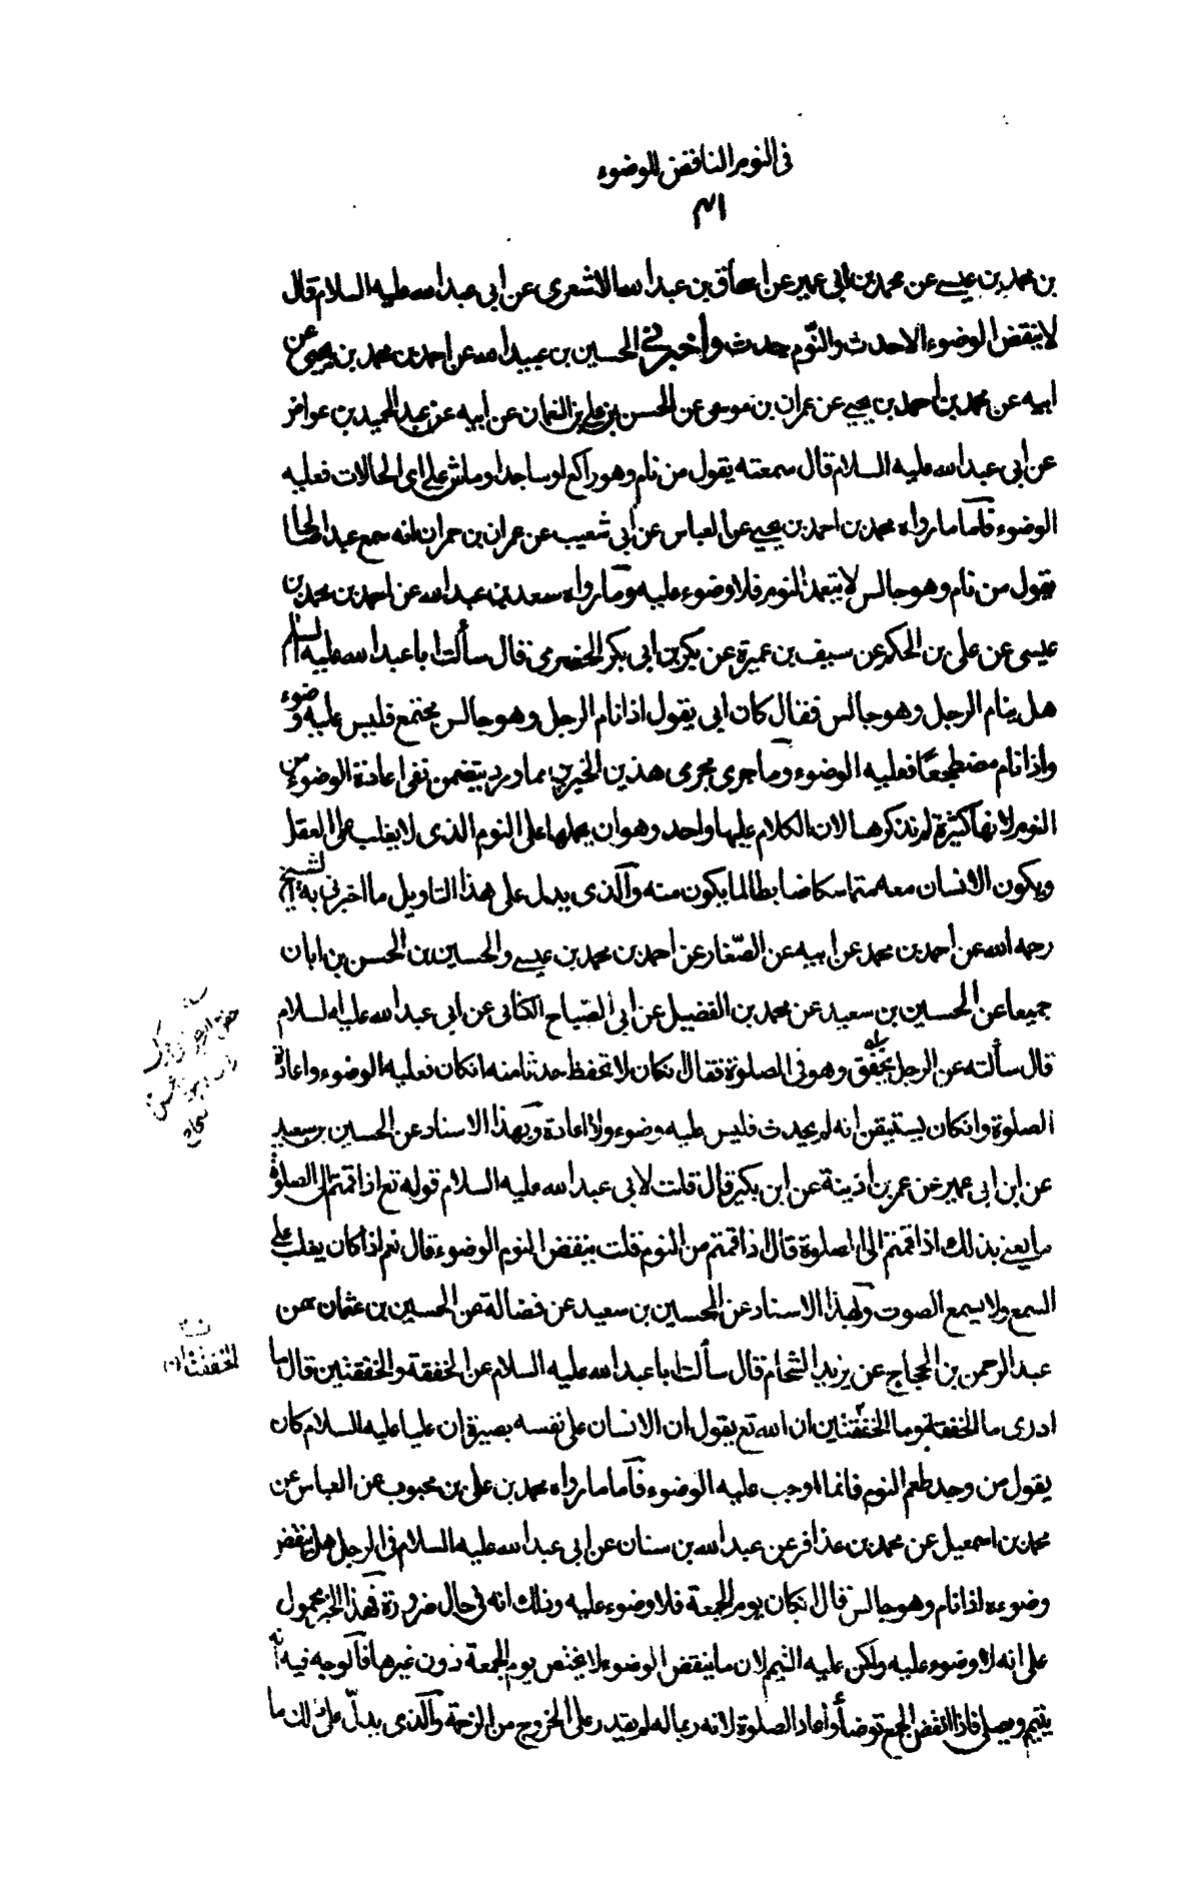 في النوم الناقض للوضوء
بن محمد بن عيسى عن محمد بن ابي عمير عن اسحاق بن عبدالله الاشعرى عن ابى عبدالله عليه السلام قال
لا ينقض الوضوء الا حدث والنّوم حدث واخبرني الحسين بن عبيدالله عن احمد بن محمد بن يحيى عن
ابيه عن محمد بن احمد بن يحيى عن عمران بن موسى عن الحسن بن على بن النعمان عن ابيه عن عبدالحميد بن عواض
عن ابى عبدالله عليه السلام قال سمعته يقول من نام وهو راكع او ساجد او ماش على اى الحالات فعليه
الوضوء فأما ما رواه محمد بن احمد بن يحيى عن العباس عن ابى شعيب عن عمران بن حمران انه سمع عبدا صالحا
يقول من نام وهو جالس لا يتعمد النوم فلا وضوء عليه وما رواه سعد بن عبدالله عن احمد بن محمد بن
عيسى عن على بن الحكم عن سيف بن عميرة عن بكر بن ابى بكر الحضرمى قال سألت ابا عبدالله عليه السلم
هل ينام الرجل وهو جالس فقال كان ابى يقول اذا نام الرجل وهو جالس مجتمع فليس عليه وضوء
واذا نام مضطجعًا فعليه الوضوء وما جرى مجرى هذين الخبرين مما ورد يتضمن نفى اعادة الوضوء من
النوم لانها كثيرة لم نذكرها لان الكلام عليها واحد وهو ان يحملها على النوم الذى لا يغلب على العقل
ويكون الانسان معه متماسكا ضابطا لما يكون منه والذى يدل على هذا التاويل ما اخبرنى به الشيخ
رحمه الله عن احمد بن محمد عن ابيه عن الصّفار عن احمد بن محمد بن عيسى والحسين بن الحسن بن ابان
جميعا عن الحسين بن سعيد عن محمد بن الفضيل عن ابى الصّباح الكنانى عن ابى عبدالله عليه السلام
قال سألته عن الرجل يخفق وهو فى الصلوة فقال انكان لا يحفظ حدثا منه انكان فعليه الوضوء واعادة
الصلوة وانكان يستيقن انه لم يحدث فليس عليه وضوء ولا اعادة وبهذا الاسناد عن الحسين بن سعيد
عن ابن ابى عمير عن عمر بن اذينة عن ابن بكير قال قلت لابى عبدالله عليه السلام قوله تع اذا قمتم الى الصلوة
ما يعنى بذلك اذا قمتم الى الصلوة قال اذا قمتم من النوم قلت ينقض النوم الوضوء قال نعم اذا كان يغلب على
السمع ولا يسمع الصوت وبهذا الاسناد عن الحسين بن سعيد عن فضالة عن الحسين بن عثمان عن
عبدالرحمن بن الحجاج عن يزيد الشحام قال سألت ابا عبدالله عليه السلام عن الخفقة والخفقتين قال ما
الخفقتان
ادرى ما الخفقة وما الخفقتين ان الله تع يقول ان الانسان على نفسه بصيرة ان عليا عليه السلام كان
يقول من وجد طعم النوم فانما اوجب عليه الوضوء فأما ما رواه محمد بن على بن محبوب عن العباس عن
محمد بن اسمعيل عن محمد بن عذافر عن عبدالله بن سنان عن ابى عبدالله عليه السلام فى الرجل هل ينقض
وضوءه اذا نام وهو جالس قال انكان يوم الجمعة فلا وضوء عليه وذلك انه فى حال ضرورة فهذا الخبر محمول
على انه لا وضوء عليه ولكن عليه التيمم لان ما ينقض الوضوء لا يختص يوم الجمعة دون غيرها فالوجه فيه انه
يتيمم ويصلى فاذا انفض الجمع توضأ واعاد الصلوة لانه ربما له لم يقدر على الخروج من الزحمة والذى يدلّ على ذلك ما